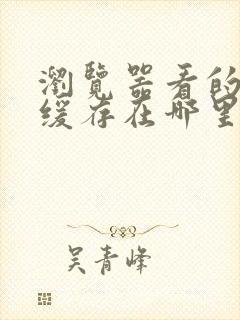 瀏覽器看的
缓存在哪里
吴青峰